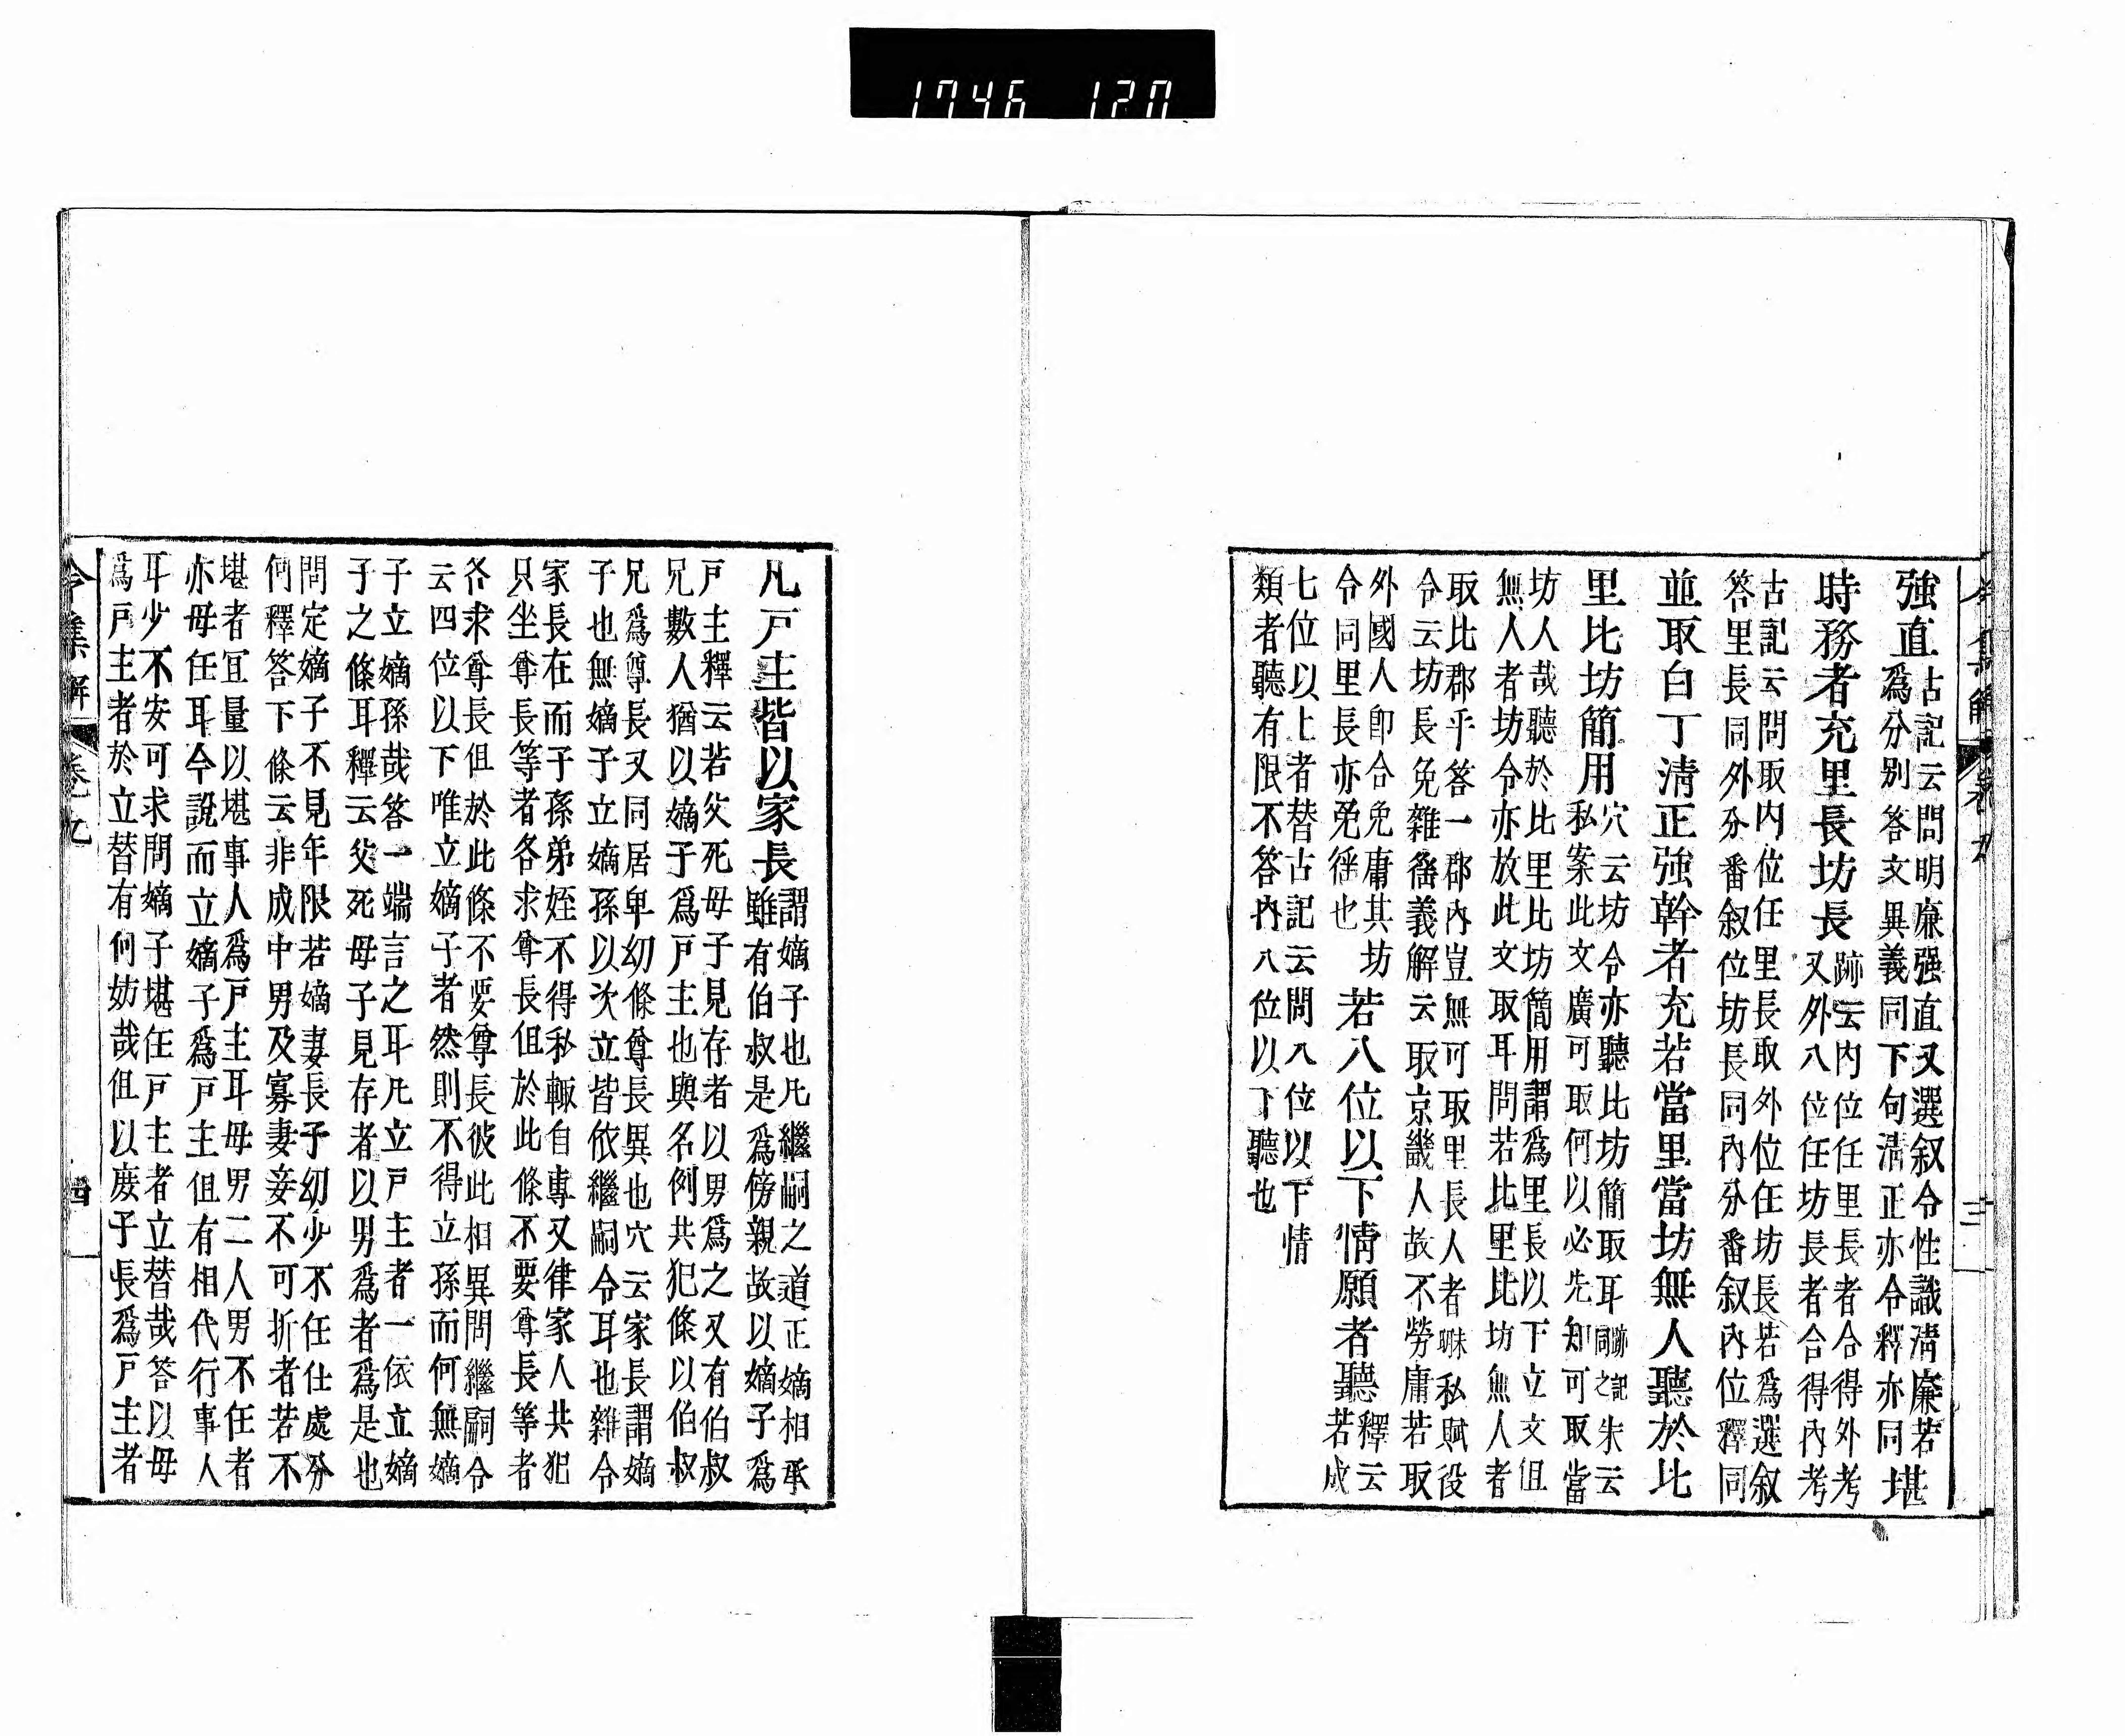 1746 120
令集解 卷九 三
強直
古記云問明廉强直又選叙令性識淸廉若
爲分別答文異義同下句淸正亦令釋亦同
堪
時務者充里長坊長
跡云内位任里長者合得外考
又外八位任坊長者合得內考
古記云問取内位任里長取外位任坊長若爲選叙
答里長同外分番叙位坊長同內分番叙內位釋同
並取白丁淸正強幹者充若當里當坊無人聽於比
里比坊簡用
穴云坊令亦聽比坊簡取耳
跡記
同之
朱云
私案此文廣可取何以必先知可取當
坊人哉聽於比里比坊簡用謂爲里長以下立文但
無人者坊令亦放此文取耳問若比里比坊無人者
取比郡乎答一郡內豈無可取里長人者哪私賦役
令云坊長免雜徭義解云取京畿人故不勞庸若取
外國人卽合免庸其坊
令同里長亦免徭也
若八位以下情願者聽
釋云
若成
七位以上者替古記云問八位以下情
類者聽有限不答內八位以下聽也
凡戸主皆以家長
謂嫡子也凡繼嗣之道正嫡相承
雖有伯叔是爲傍親故以嫡子爲
戸主釋云若父死母子見存者以男爲之又有伯叔
兄數人猶以嫡子爲戸主也與名例共犯條以伯叔
兄爲尊長又同居卑幼條尊長異也穴云家長謂嫡
子也無嫡子立嫡孫以次立皆依繼嗣令耳也雜令
家長在而子孫弟姪不得私輙自專又律家人共犯
只坐尊長等者各求尊長但於此條不要尊長等者
各求尊長但於此條不要尊長彼此相異問繼嗣令
云四位以下唯立嫡子者然則不得立孫而何無嫡
子立嫡孫哉答一端言之耳凡立戸主者一依立嫡
子之條耳釋云父死母子見存者以男爲者爲是也
問定嫡子不見年限若嫡妻長子幼少不任仕處分
何釋答下條云非成中男及寡妻妾不可折者若不
堪者冝量以堪事人爲戸主耳母男二人男不任者
亦母任耳今說而立嫡子爲戸主但有相代行事人
耳少不安可求問嫡子堪任戸主者立替哉答以母
爲戸主者於立替有何妨哉但以庶子長爲戸主者
令集解 卷之九 四